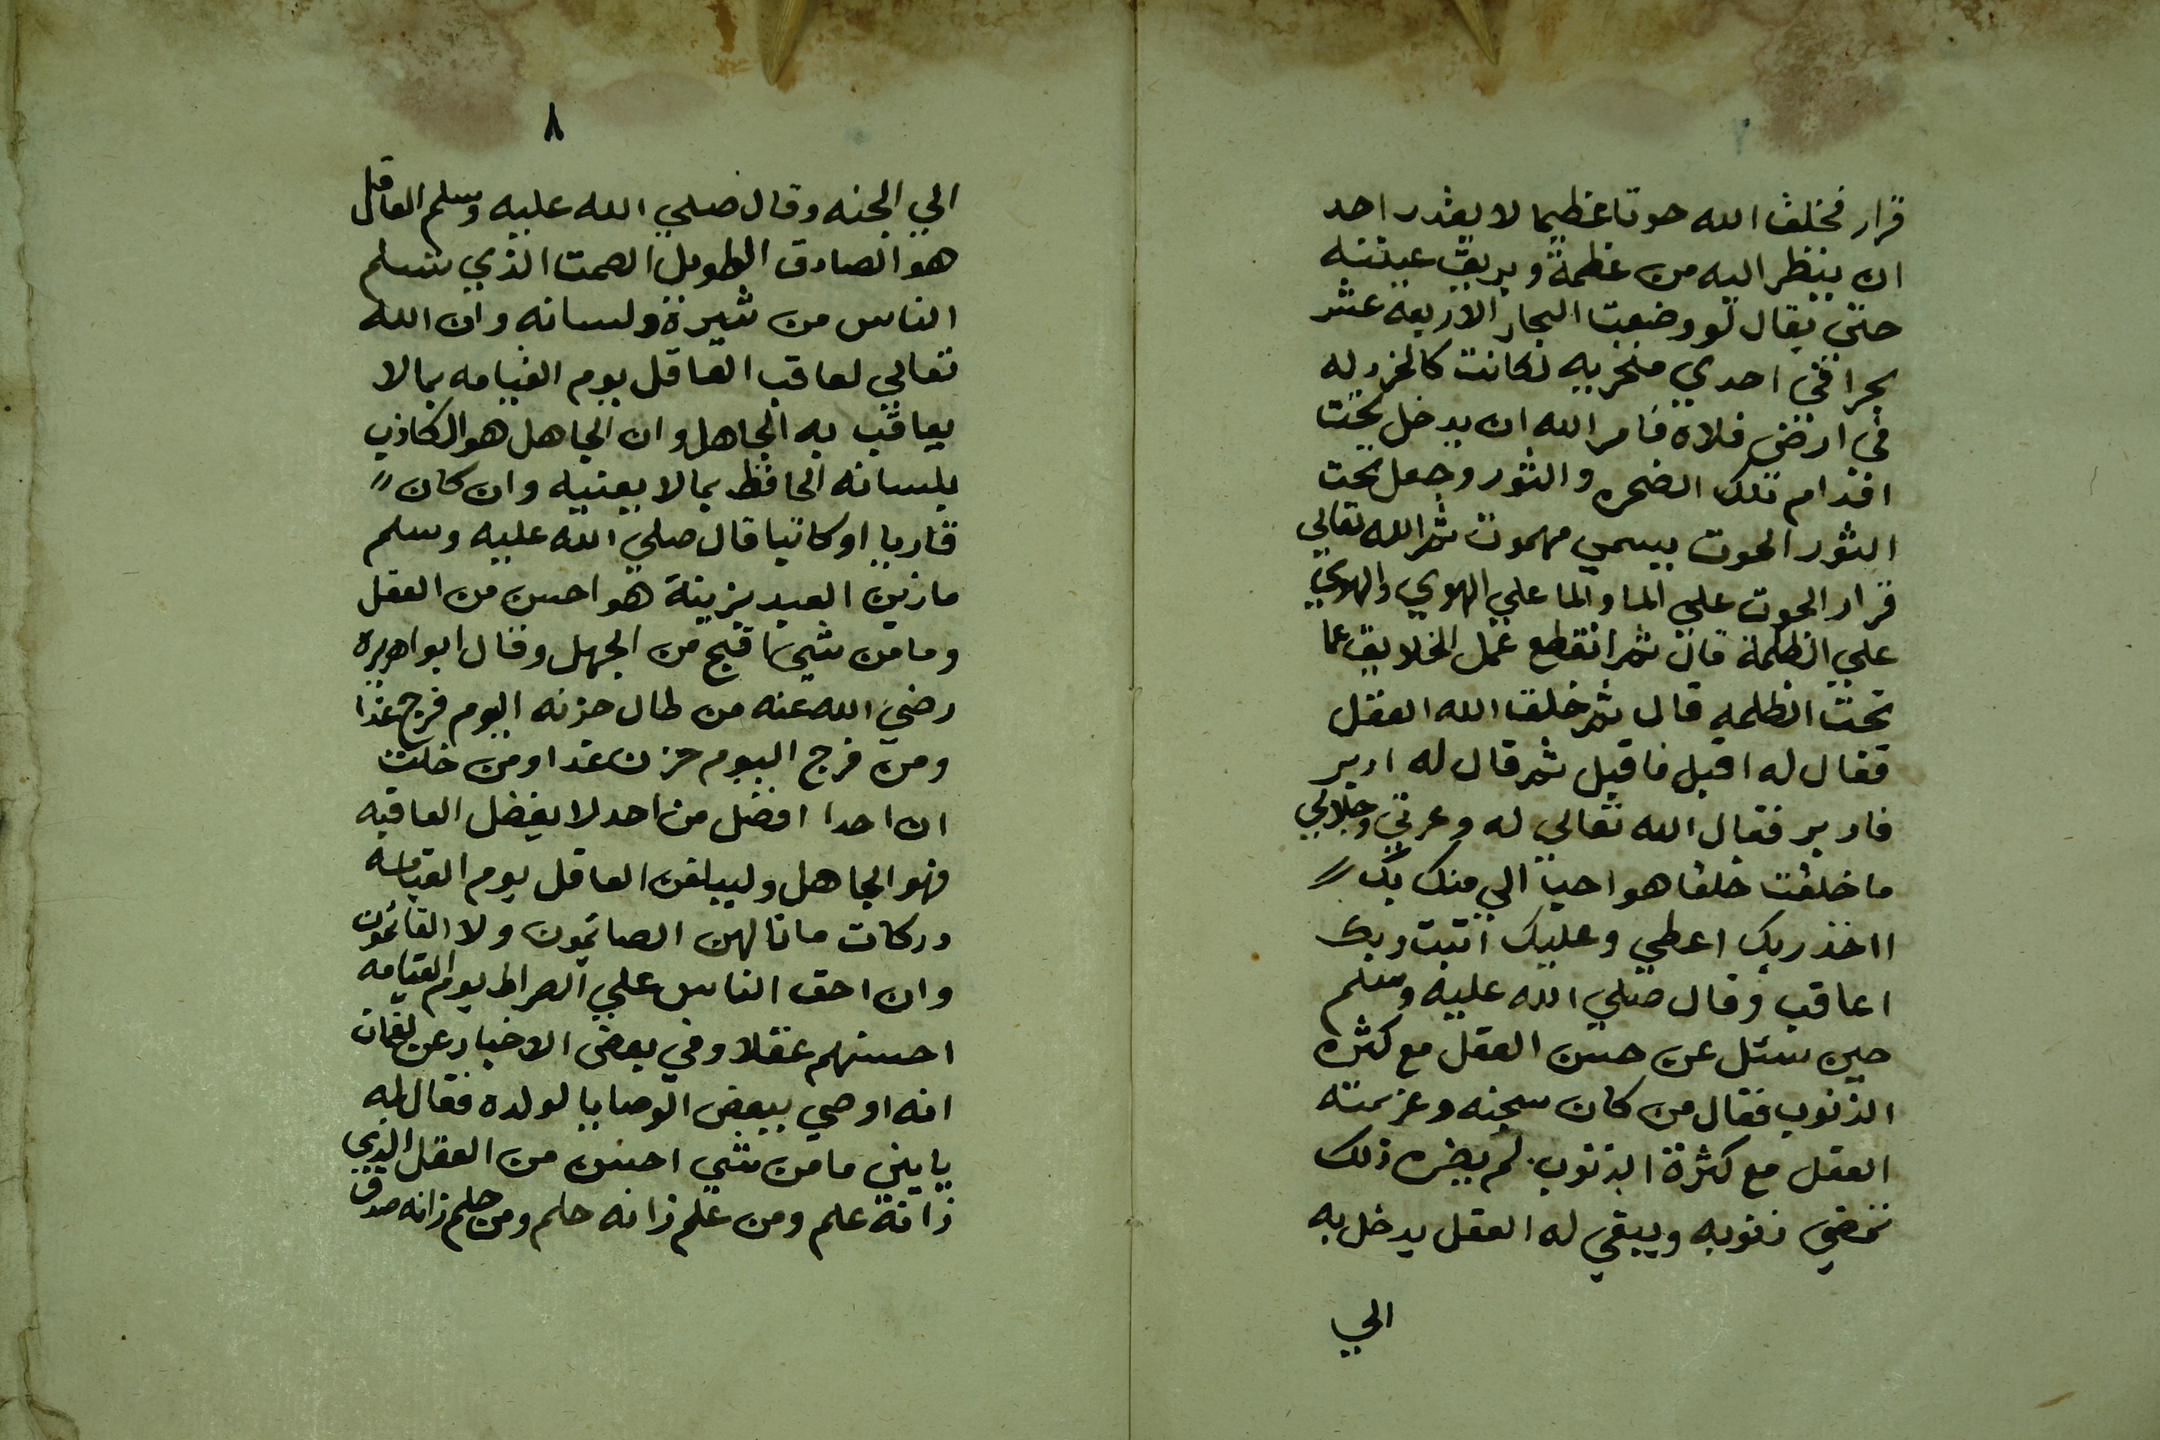 قرار فخلق الله حوتا عظيما لا يقدر احد
ان ينظر اليه من عظمة وبريق عينيه
حتي يقال لو وضعت البحار الاربعه عشر
بحرا في احدي منخريه لكانت كالخردله
في ارض فلاه فامر الله ان يدخل تحت
اقدام تلك الضخره والثور وجعل تحت
الثور الحوت يسمي مهموت ثم الله تعالي
قرار الحوت علي الما والما علي الهوي والهوي
علي الظلمة قال ثم انقطع عمل الخلايق عما
تحت الظلمه قال ثم خلق الله العقل
فقال له اقبل فاقبل ثم قال له ادبر
فادبر فقال الله تعالي له وعزتي وجلالي
ما خلقت خلقا هو احب الي منك بك
ااخذ وبك اعطي وعليك اتبت وبك
اعاقب وقال صلي الله عليه وسلم
حين سئل عن حسن العقل مع كثره
الذنوب فقال من كان سجنه وعزمته
العقل مع كثرة الذنوب لم يضره ذلك
نمضي ذنوبه ويبقي له العقل يدخل به
الي
٨
الي الجنه وقال صلي الله عليه وسلم العاقل
هو الصادق الطويل الصمت الذي سلم
الناس من شره ولسانه وان الله
تعالي لعاقب العاقل يوم القيامه بما لا
يعاقب به الجاهل وان الجاهل هو الكاذب
بلسانه الحافظ بما لا يعنيه وان كان
قاريا او كاتبا قال صلي الله عليه وسلم
ما زين العبد بزينة هو احسن من العقل
وما من شي اقبح من الجهل وقال ابو اهريره
رضي الله عنه من طال حزنه اليوم فرج غذا
ومن فرج اليوم حزن غدا ومن خلت
ان احدا افضل من احد لا يفضل العاقبه
فهو الجاهل وليبلغن العاقل يوم القيامه
دركات ما نالهن الصائمون ولا القائمون
وان احق الناس علي الصراط يوم القيامه
احسنهم عقلا وفي بعض الاخبار عن لقمان
انه اوصي ببعض الوصايا لولده فقال له
يا بني ما من شي احسن من العقل الذي
زانة علم ومن علم زانه حلم ومن حلم زانه صدق